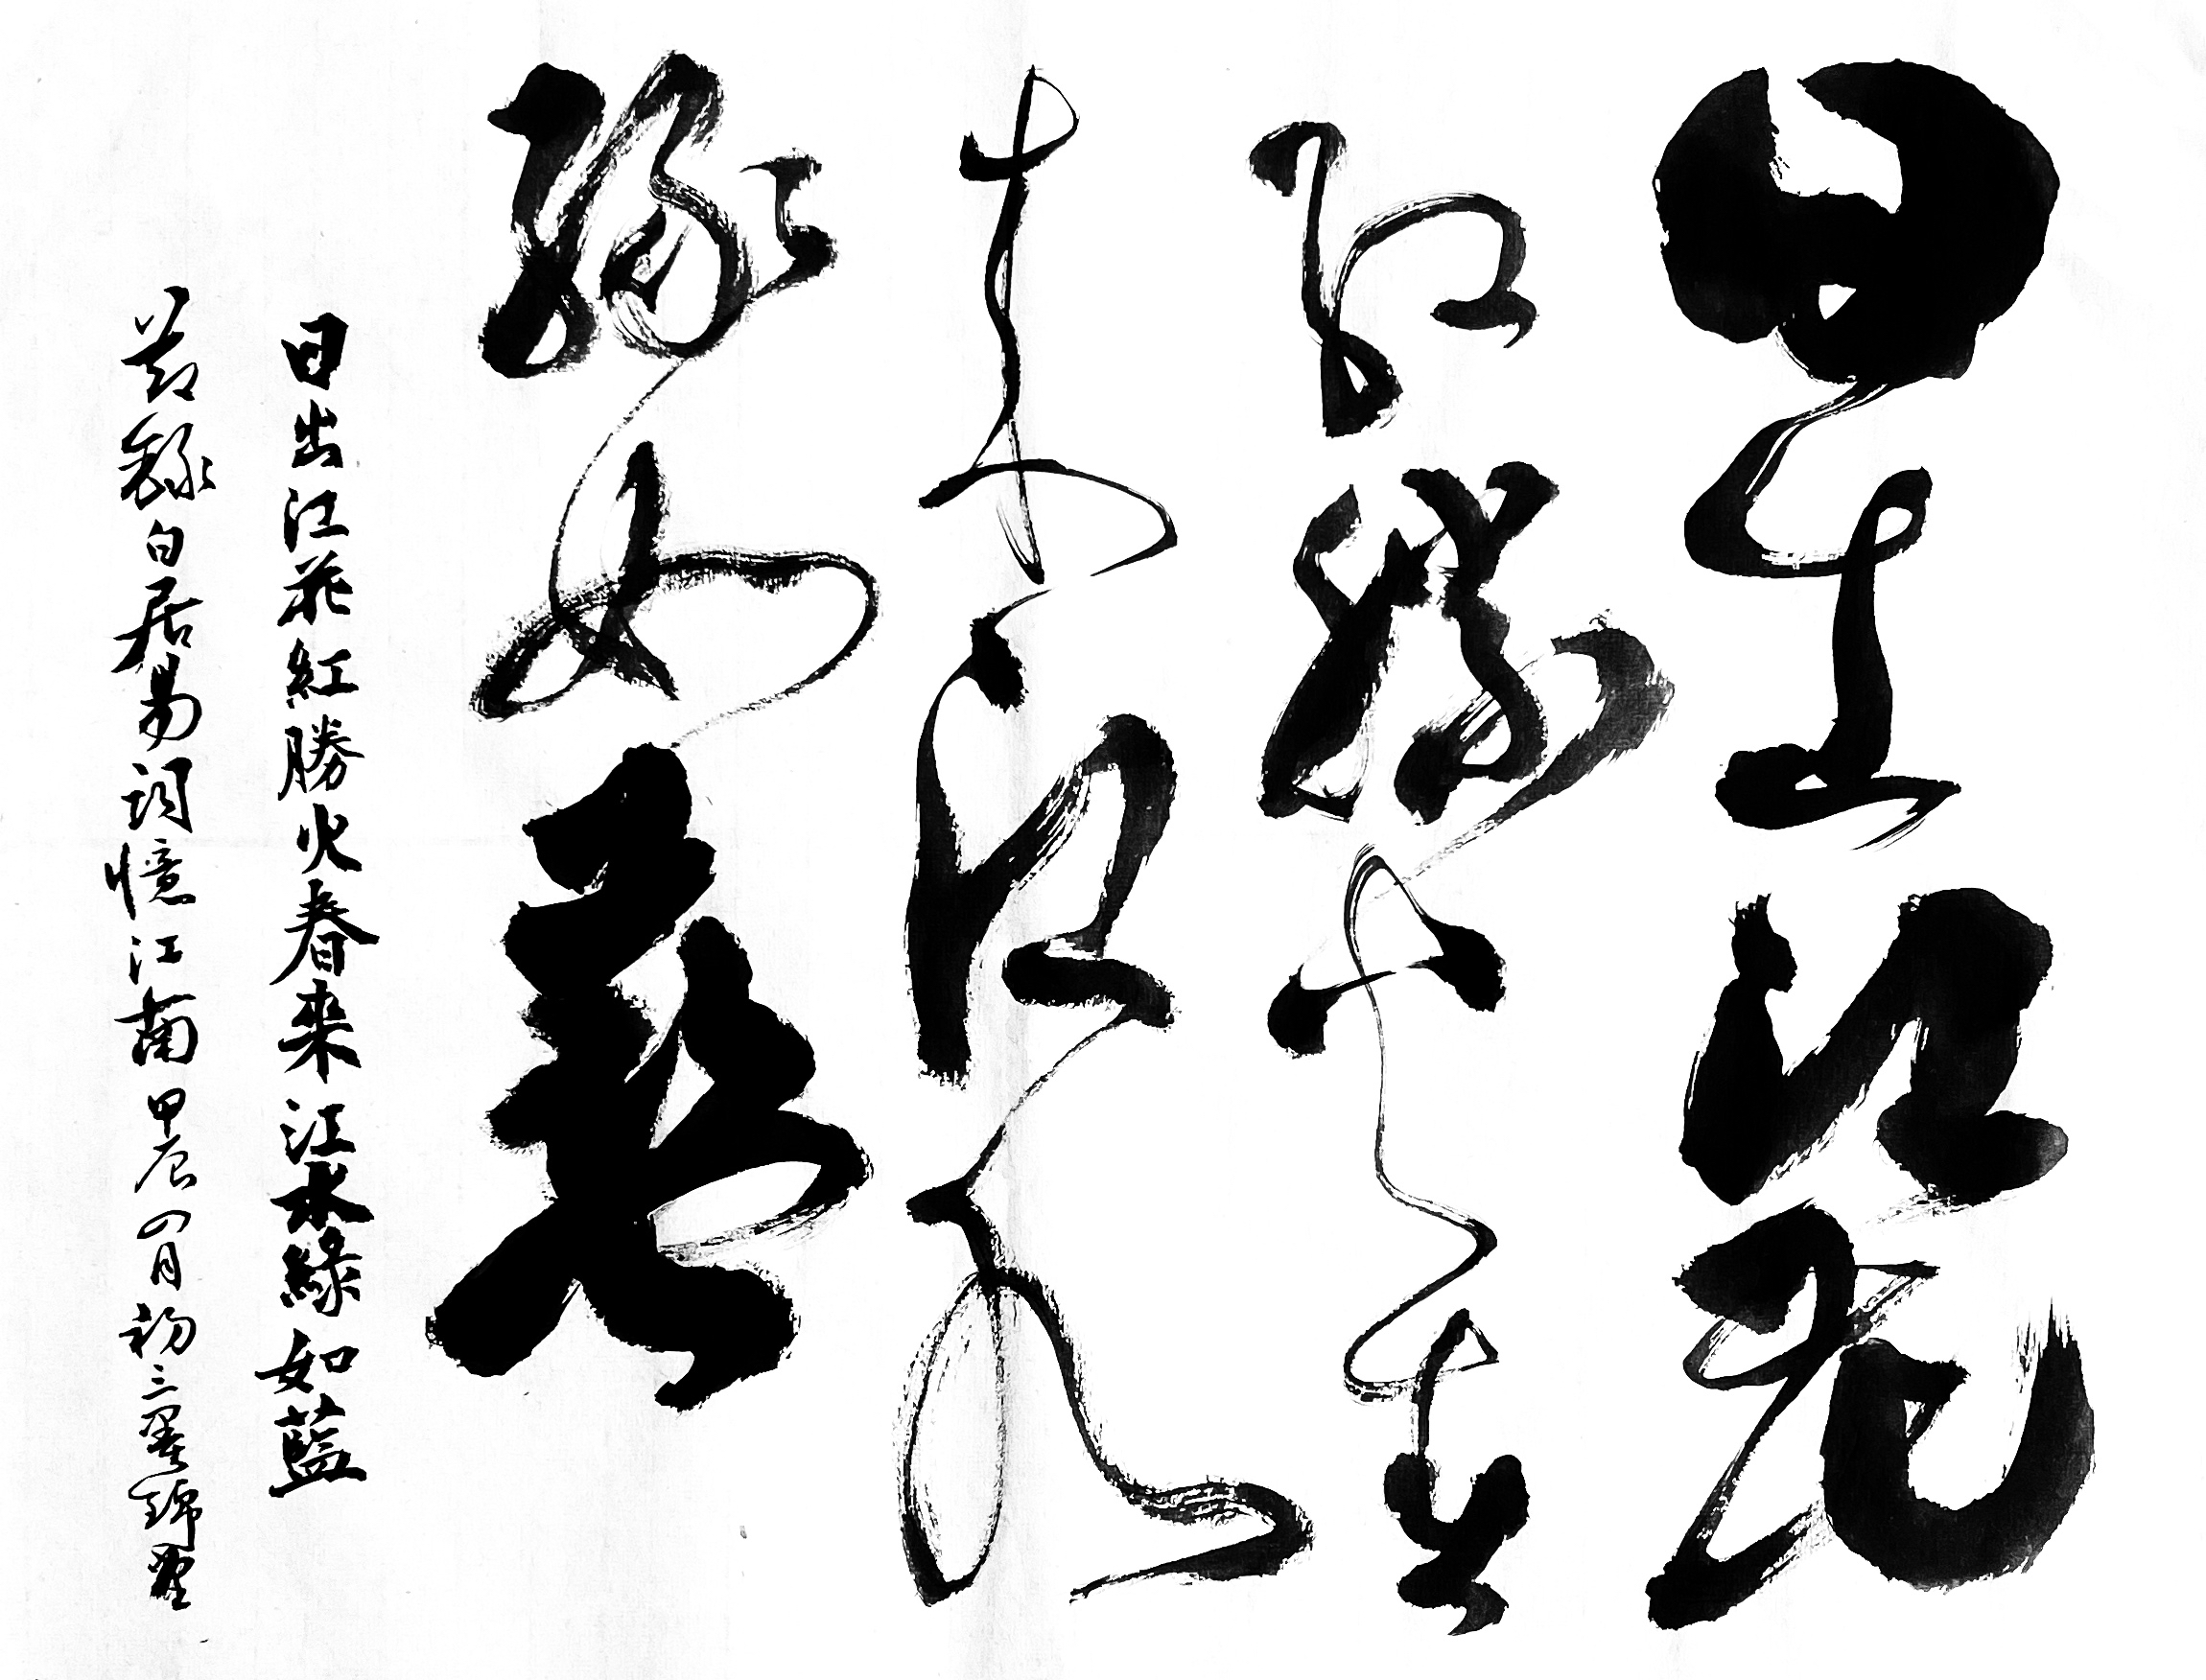 日出江花
红勝火春
来江水
緑如藍
日出江花紅勝火春来江水綠如藍
節録白居易詞憶江南甲辰四月初三墨錦